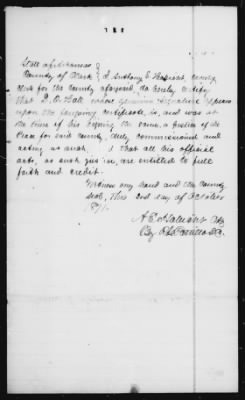 State of Arkansas
County of Clark } I Anthony E
Clerk for the County aforesaid, do hereby certify
that Hall whose genuine signature appears
upon the foregoing certificate, is, and was at
the time of his signing the same, a Justice of the
Peace for said County, duly commissioned and
acting as such, that all his official
acts, as such given, are entitled to full
faith and credit.
Witness my hand and the County
seal, this 21st day of October
A. E.
By